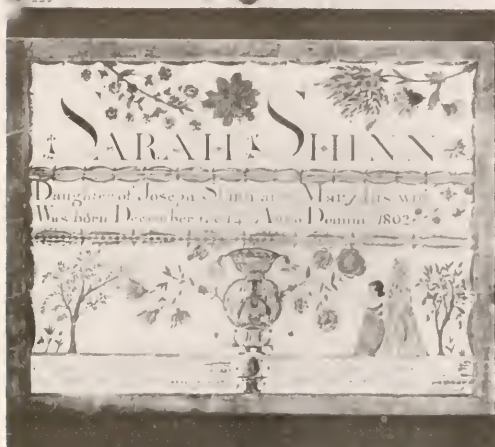 SARAH SHINN
Daughter of Joseph Shinn and Mary his wife
Was born December the 14 Anno Domini 1802